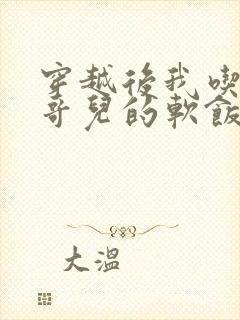 穿越後我喫
哥兒的軟飯
大溫